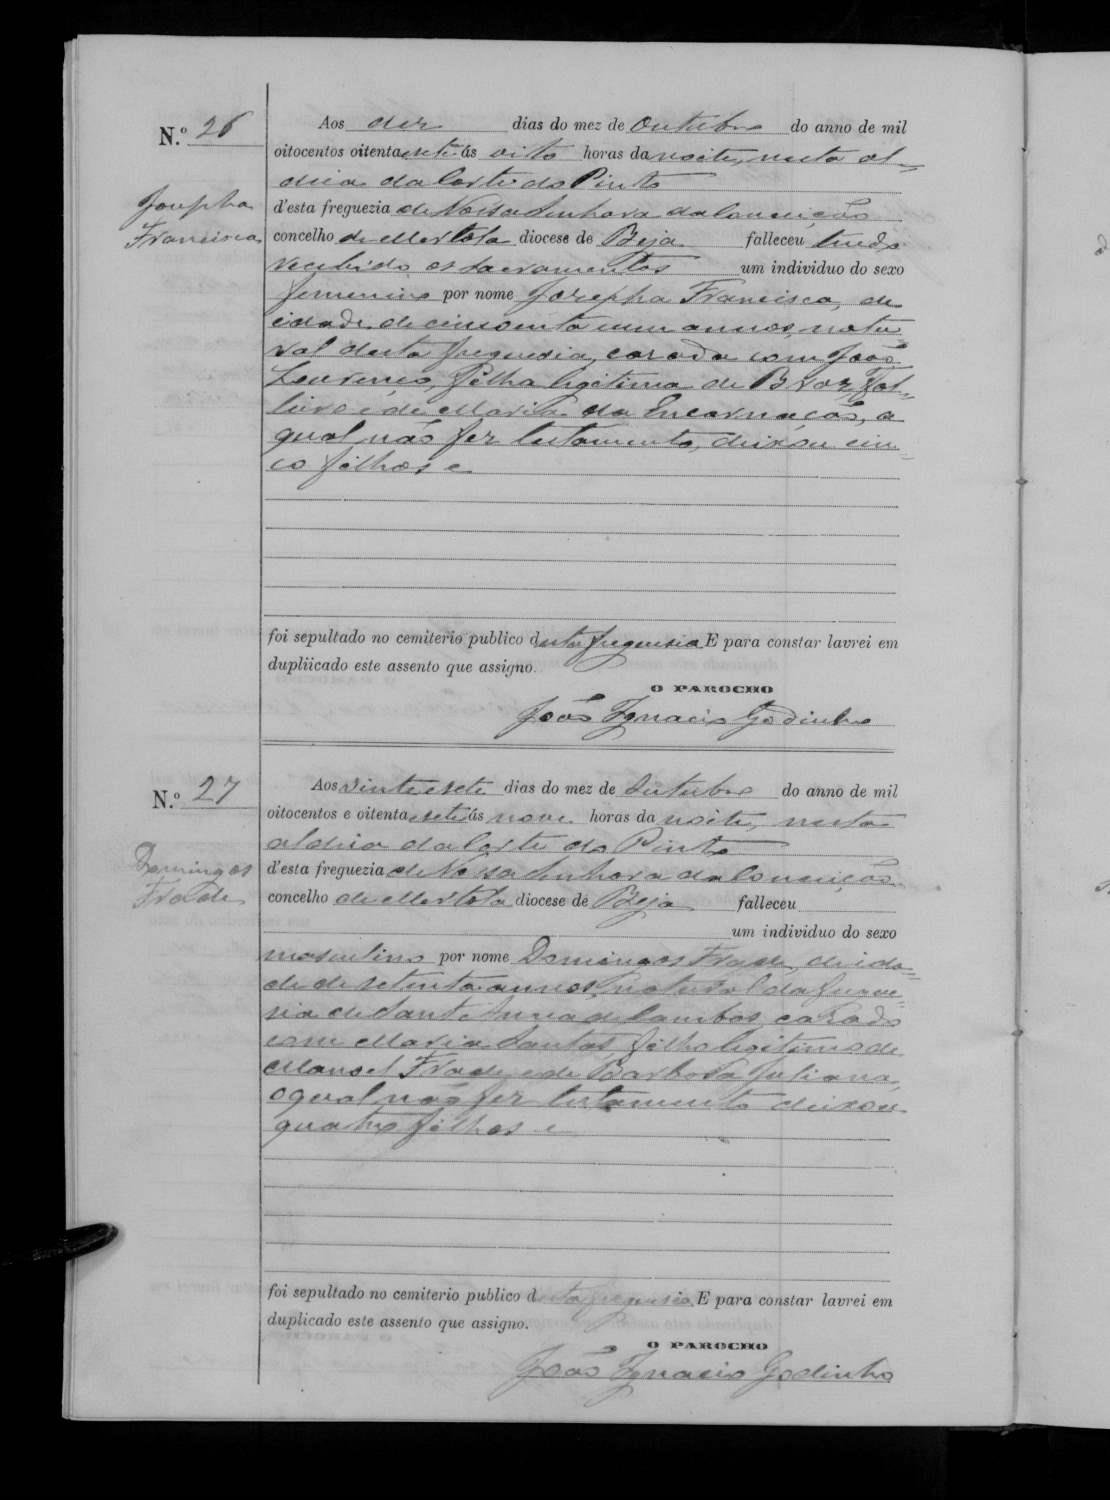 N.º 26
Josepha
Francisca
Aos dez dias do mez de Outubro do anno de mil
oitocentos oitenta e sete ás oito horas da noite, nesta al-
deia da Corte do Pinto
d'esta freguezia de Nossa Senhora da Conceição
concelho de Mertola diocese de Beja falleceu tendo
recebido os sacramentos um individuo do sexo
femenino por nome Josepha Francisca, de
idade de cincoenta e um annos, natu
ral desta freguesia, casada com João
Lourenço, filha legitima de Braz
e de Maria da Encarnação, a
qual não fez testamento, deixou cin-
co filhos e
foi sepultado no cemiterio publico desta freguesia E para constar lavrei em
dupliicado este assento que assigno.
O PAROCHO
João Ignacio Godinho
N.º 27
Domingos
Frade
Aos vinte e sete dias do mez de Outubro do anno de mil
oitocentos e oitenta e sete ás nove horas da noite, nesta
aldeia da Corte do Pinto
d'esta freguezia de Nossa Senhora da Conceição
concelho de Mertola diocese de Beja falleceu
um individuo do sexo
masculino por nome Domingos Frade, de ida-
de de setenta annos, natural da fregue-
sia de Sant'Anna de Cambas, casado
com Maria Santas, filho legitimo de
Manoel Frade, e de Barbosa Juliana,
o qual não fez testamento deixou
quatro filhos e
foi sepultado no cemiterio publico desta freguesia E para constar lavrei em
duplicado este assento que assigno.
O PAROCHO
João Ignacio Godinho